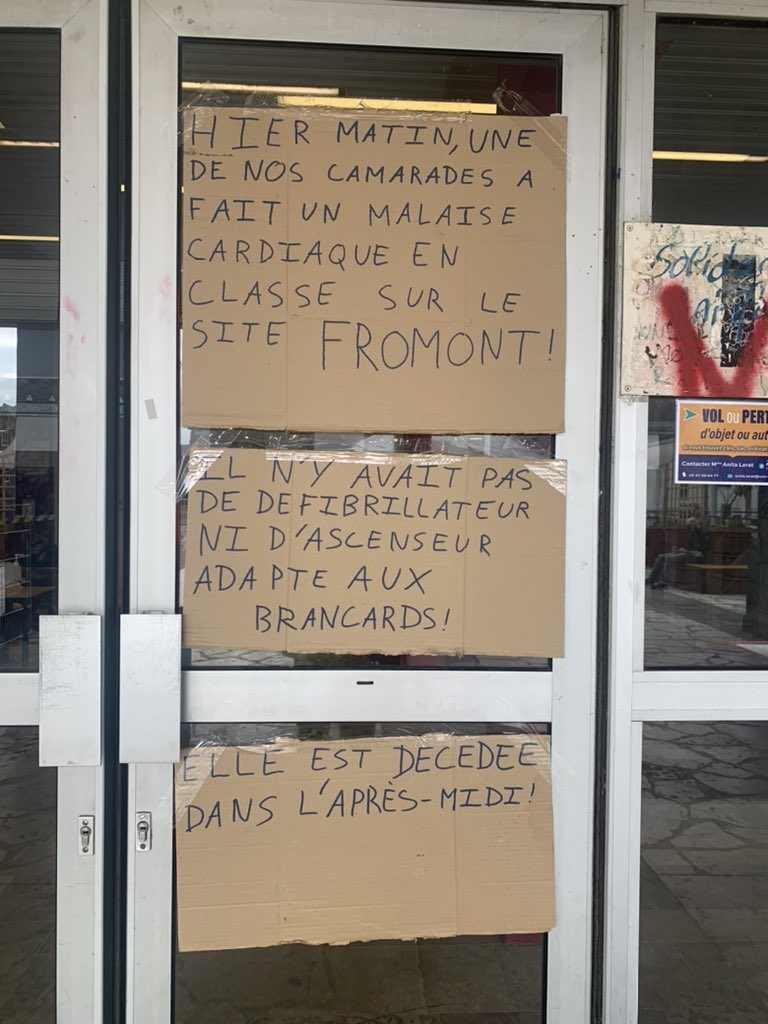 HIER MATIN, UNE
DE NOS CAMARADES A
FAIT UN MALAISE
CARDIAQUE EN
CLASSE SUR LE
SITE FROMONT!
IL N'Y AVAIT PAS
DE DEFIBRILLATEUR
NI D'ASCENSEUR
ADAPTE AUX
BRANCARDS!
ELLE EST DECEDEE
DANS L'APRÈS-MIDI!
VOL OU PERT
d'objet ou aut
Contacter Mme Anita Lerat